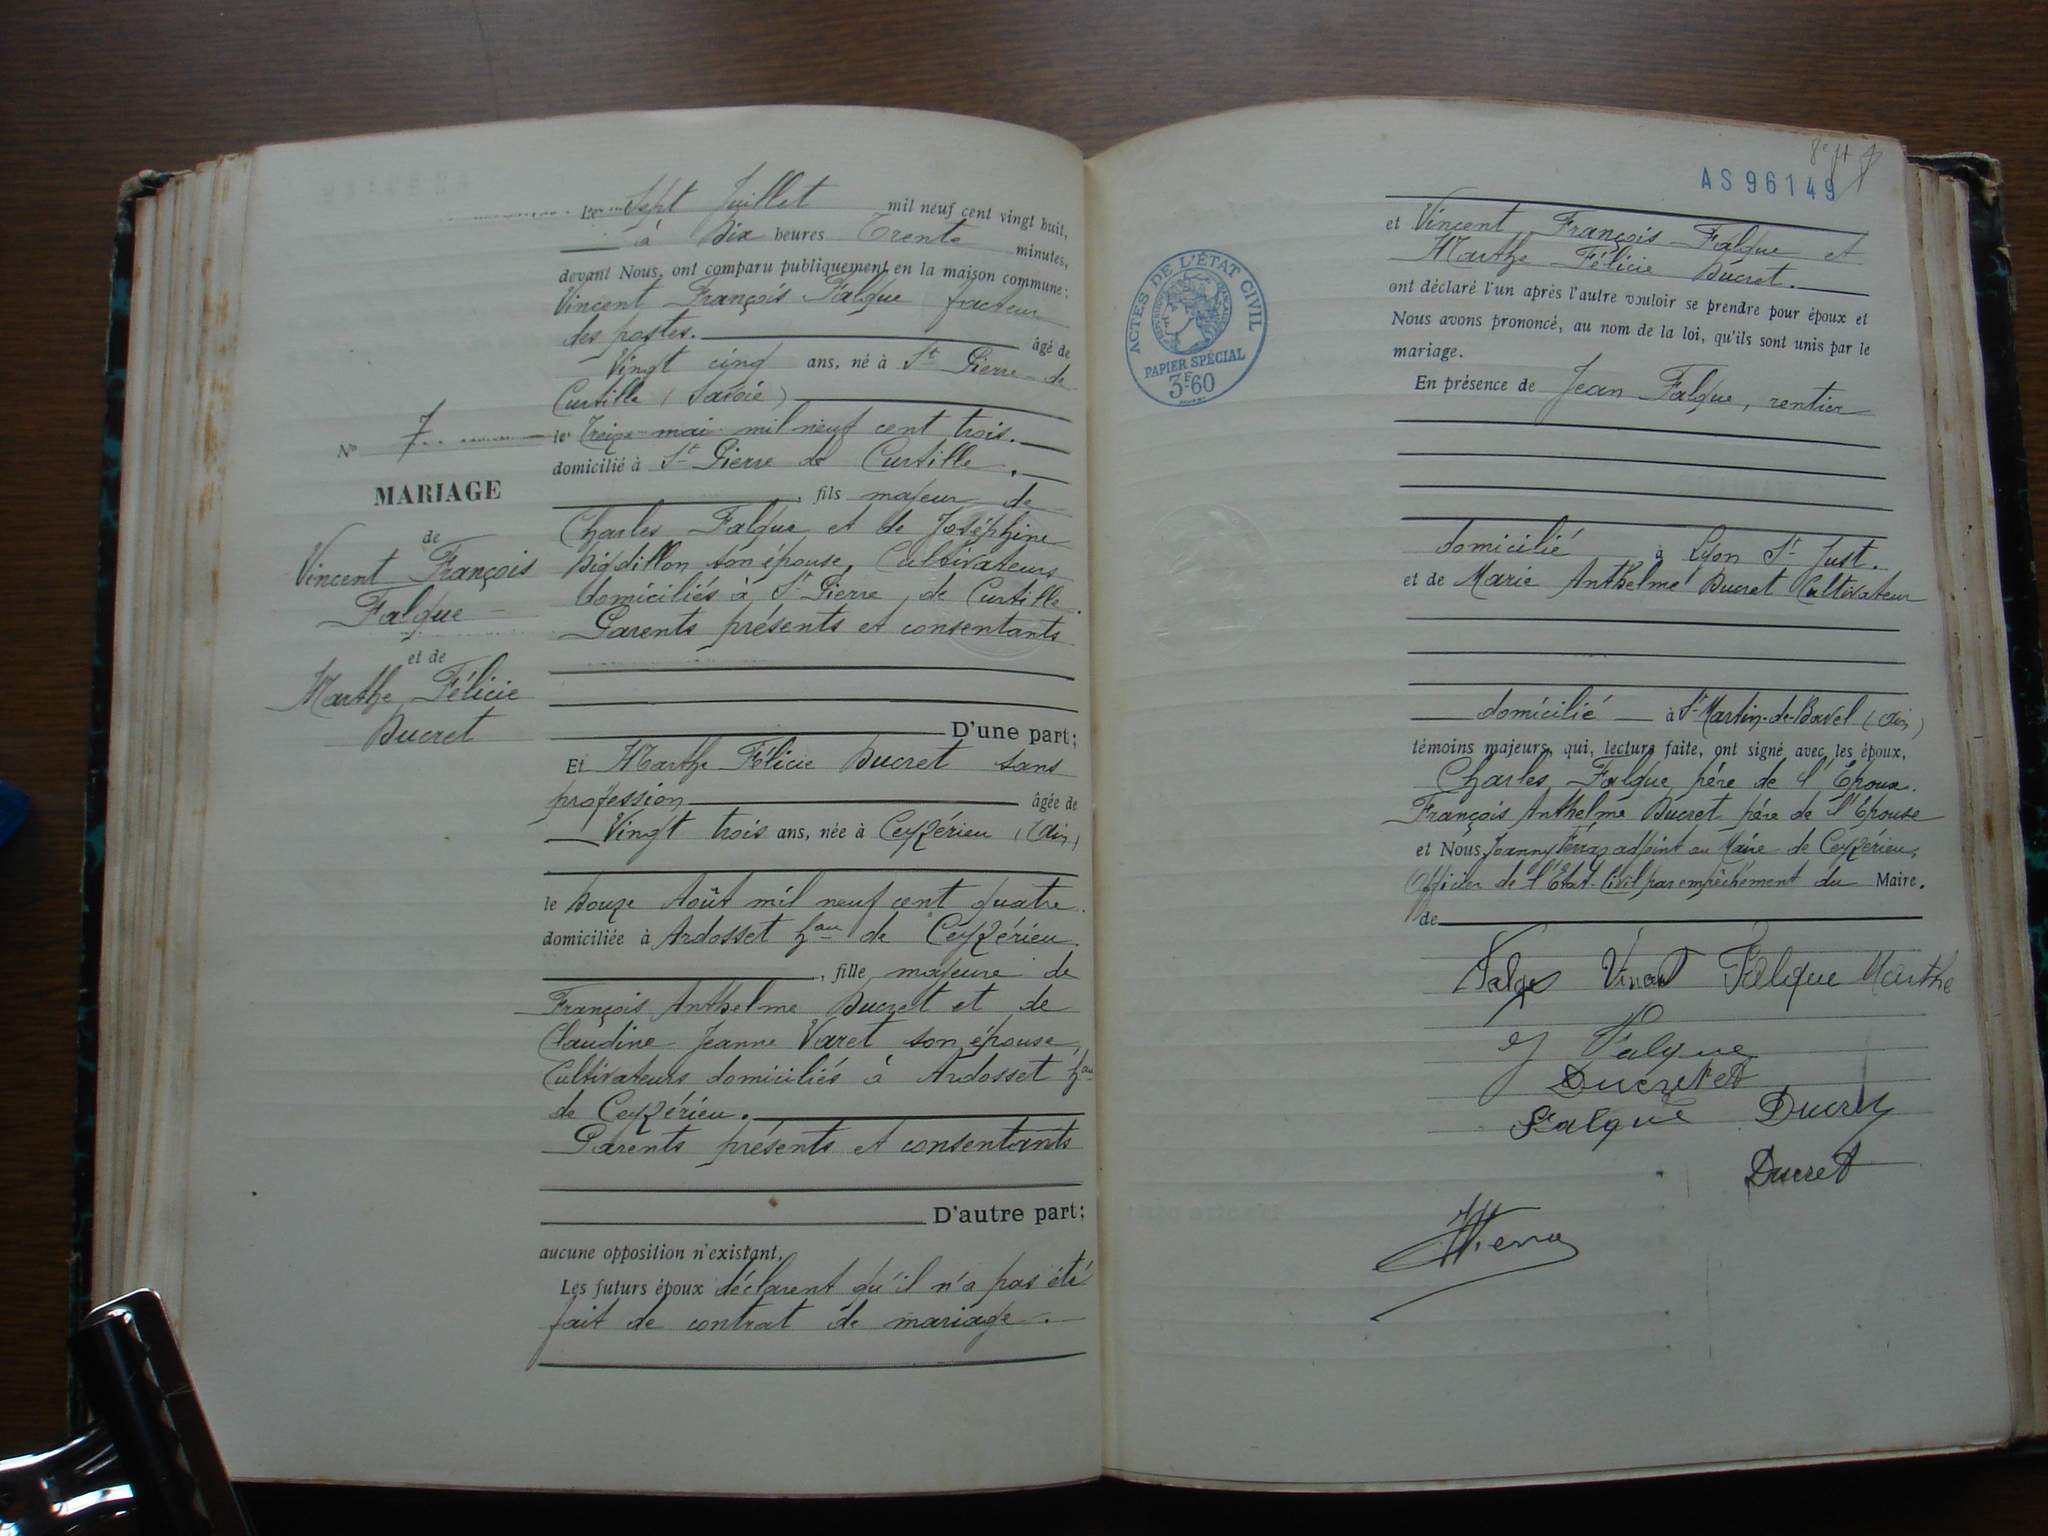 Le Sept Juillet mil neuf cent vingt huit,
à Dix heures Trente minutes,
devant Nous, ont comparu publiquement en la maison commune:
Vincent François Falque facteur
des postes. âgé de
Vingt cinq ans, né à St Pierre de
Curtille (Savoie)
le Treize mai mil neuf cent trois.
domicilié à St Pierre de Curtille.
, fils majeur de
Charles Falque et de Joséphine
son épouse, Cultivateurs
domiciliés à St Pierre de Curtille.
Parents présents et consentants
D'une part;
Et Marthe Félicie Ducret sans
profession âgée de
Vingt trois ans, née à Ceyzérieu (Ain)
le Douze Août mil neuf cent quatre
domiciliée à Ardosset hau de Ceyzérieu.
, fille majeure de
François Anthelme Ducret et de
Claudine Jeanne Varet son épouse,
Cultivateurs domiciliés à Ardosset hau
de Ceyzérieu.
Parents présents et consentants
D'autre part;
aucune opposition n'existant.
Les futurs époux déclarent qu'il n'a pas été
fait de contrat de mariage.
No 7
MARIAGE
de
Vincent François
Falque
et de
Marthe Félicie
Ducret
AS96149
ACTES DE L'ÉTAT CIVIL
PAPIER SPÉCIAL
3F60
et Vincent François Falque et
Marthe Félicie Ducret.
ont déclaré l'un après l'autre vouloir se prendre pour époux et
Nous avons prononcé, au nom de la loi, qu'ils sont unis par le
mariage.
En présence de Jean Falque, rentier
domicilié à Lyon St Just.
et de Marie Anthelme Ducret Cultivateur
domicilié à St Martin-de-Bavel (Ain)
témoins majeurs, qui, lecture faite, ont signé avec les époux,
Charles Falque père de l'Epoux.
François Anthelme Ducret père de l'Epouse
et Nous Joanny Ferraz adjoint au Maire de Ceyzérieu,
Officier de l'Etat-Civil par empêchement du Maire.
de
Falque Vincent Falque Marthe
J Falque
Ducret
Falque Ducret
Ducret